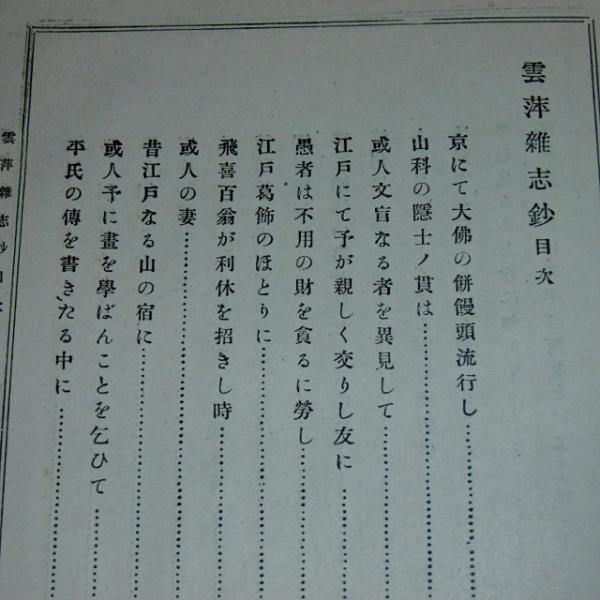 雲萍雜志鈔目次
京にて大佛の餠饅頭流行し
山科の隱士ノ貫は
或人文盲なる者を異見して
江戸にて予が親しく交りし友に
愚者は不用の財を貪るに勞し
江戸葛飾のほとりに
飛喜百翁が利休を招きし時
或人の妻
昔江戸なる山の宿に
或人予に畫を學ばんことを乞ひて
平氏の傳を書きたる中に
雲萍雜志鈔目次